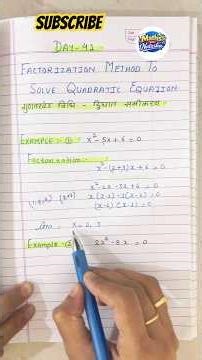 SUBSCRIBE
Maths
DAY-41
FACTORIZATION METHOD TO
SOLVE QUADRATIC EQUATION
गुणनखंड विधि - द्विघात समीकरण
EXAMPLE:- ① x²-5x+6=0
Factorization:-
x²-(2+3)x+6=0
x²-2x-3x+6=0
x(x-2)-3(x-2)=0
(x-2)(x-3)=0
x=2, 3
Example-② 2x²-8x=0